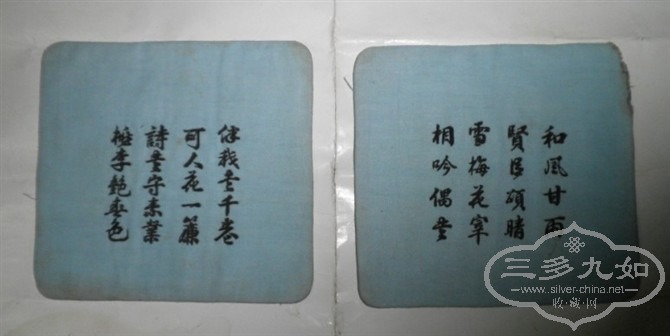 和風甘雨
賢臣頌晴
雪梅花
相吟偶書
伴我書千卷
可人花一簾
詩書守素業
桃李艷春色
三多九如
www.silver-china.com
·收·藏·网·